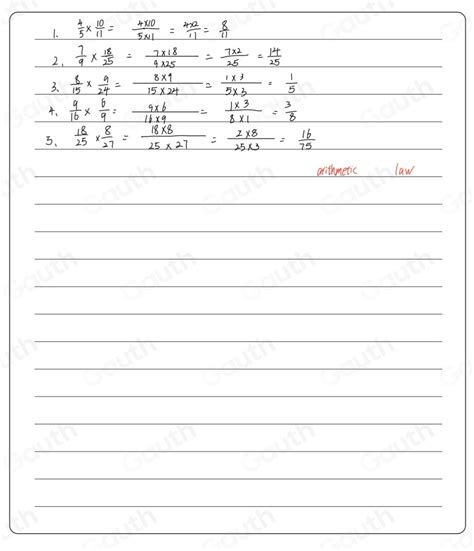 1. 4/5 × 10/11 = 4×10/5×11 = 4×2/11 = 8/11
2. 7/9 × 18/25 = 7×18/9×25 = 7×2/25 = 14/25
3. 8/15 × 9/24 = 8×9/15×24 = 1×3/5×3 = 1/5
4. 9/16 × 6/9 = 9×6/16×9 = 1×3/8×1 = 3/8
5. 18/25 × 8/27 = 18×8/25×27 = 2×8/25×3 = 16/75
arithmetic law
Gauth